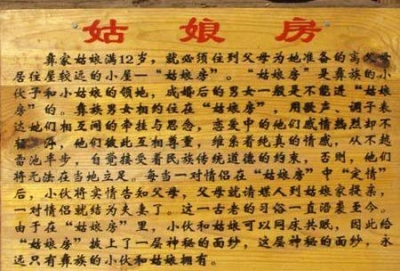 姑娘房
彝家姑娘满12岁，就必须住到父母为她准备的离
居住屋较远的小屋—“姑娘房”。“姑娘房”是彝族的小
伙子和小姑娘的领地，成婚后的男女一般是不能进“姑娘
房”的。彝族男女相约住在“姑娘房”，用歌声、调子表
达她们相互间的牵挂与思念，恋爱中的他们感情热烈却不
轻浮，他们彼此互相尊重，维系着纯真的情感，从不越
雷池半步，自觉接受着民族传统道德的约束，否则，他们
将无法在当地立足。每当一对情侣在“姑娘房”中“定情”
后，小伙将实情告知父母，父母就请媒人到姑娘家提亲，
一对情侣就结为夫妻了。这一古老的习俗一直沿袭至今。
由于在“姑娘房”里，小伙和姑娘可以同床共眠，因此给
“姑娘房”披上了一层神秘的面纱，这层神秘的面纱，永
远只有彝族的小伙和姑娘拥有。